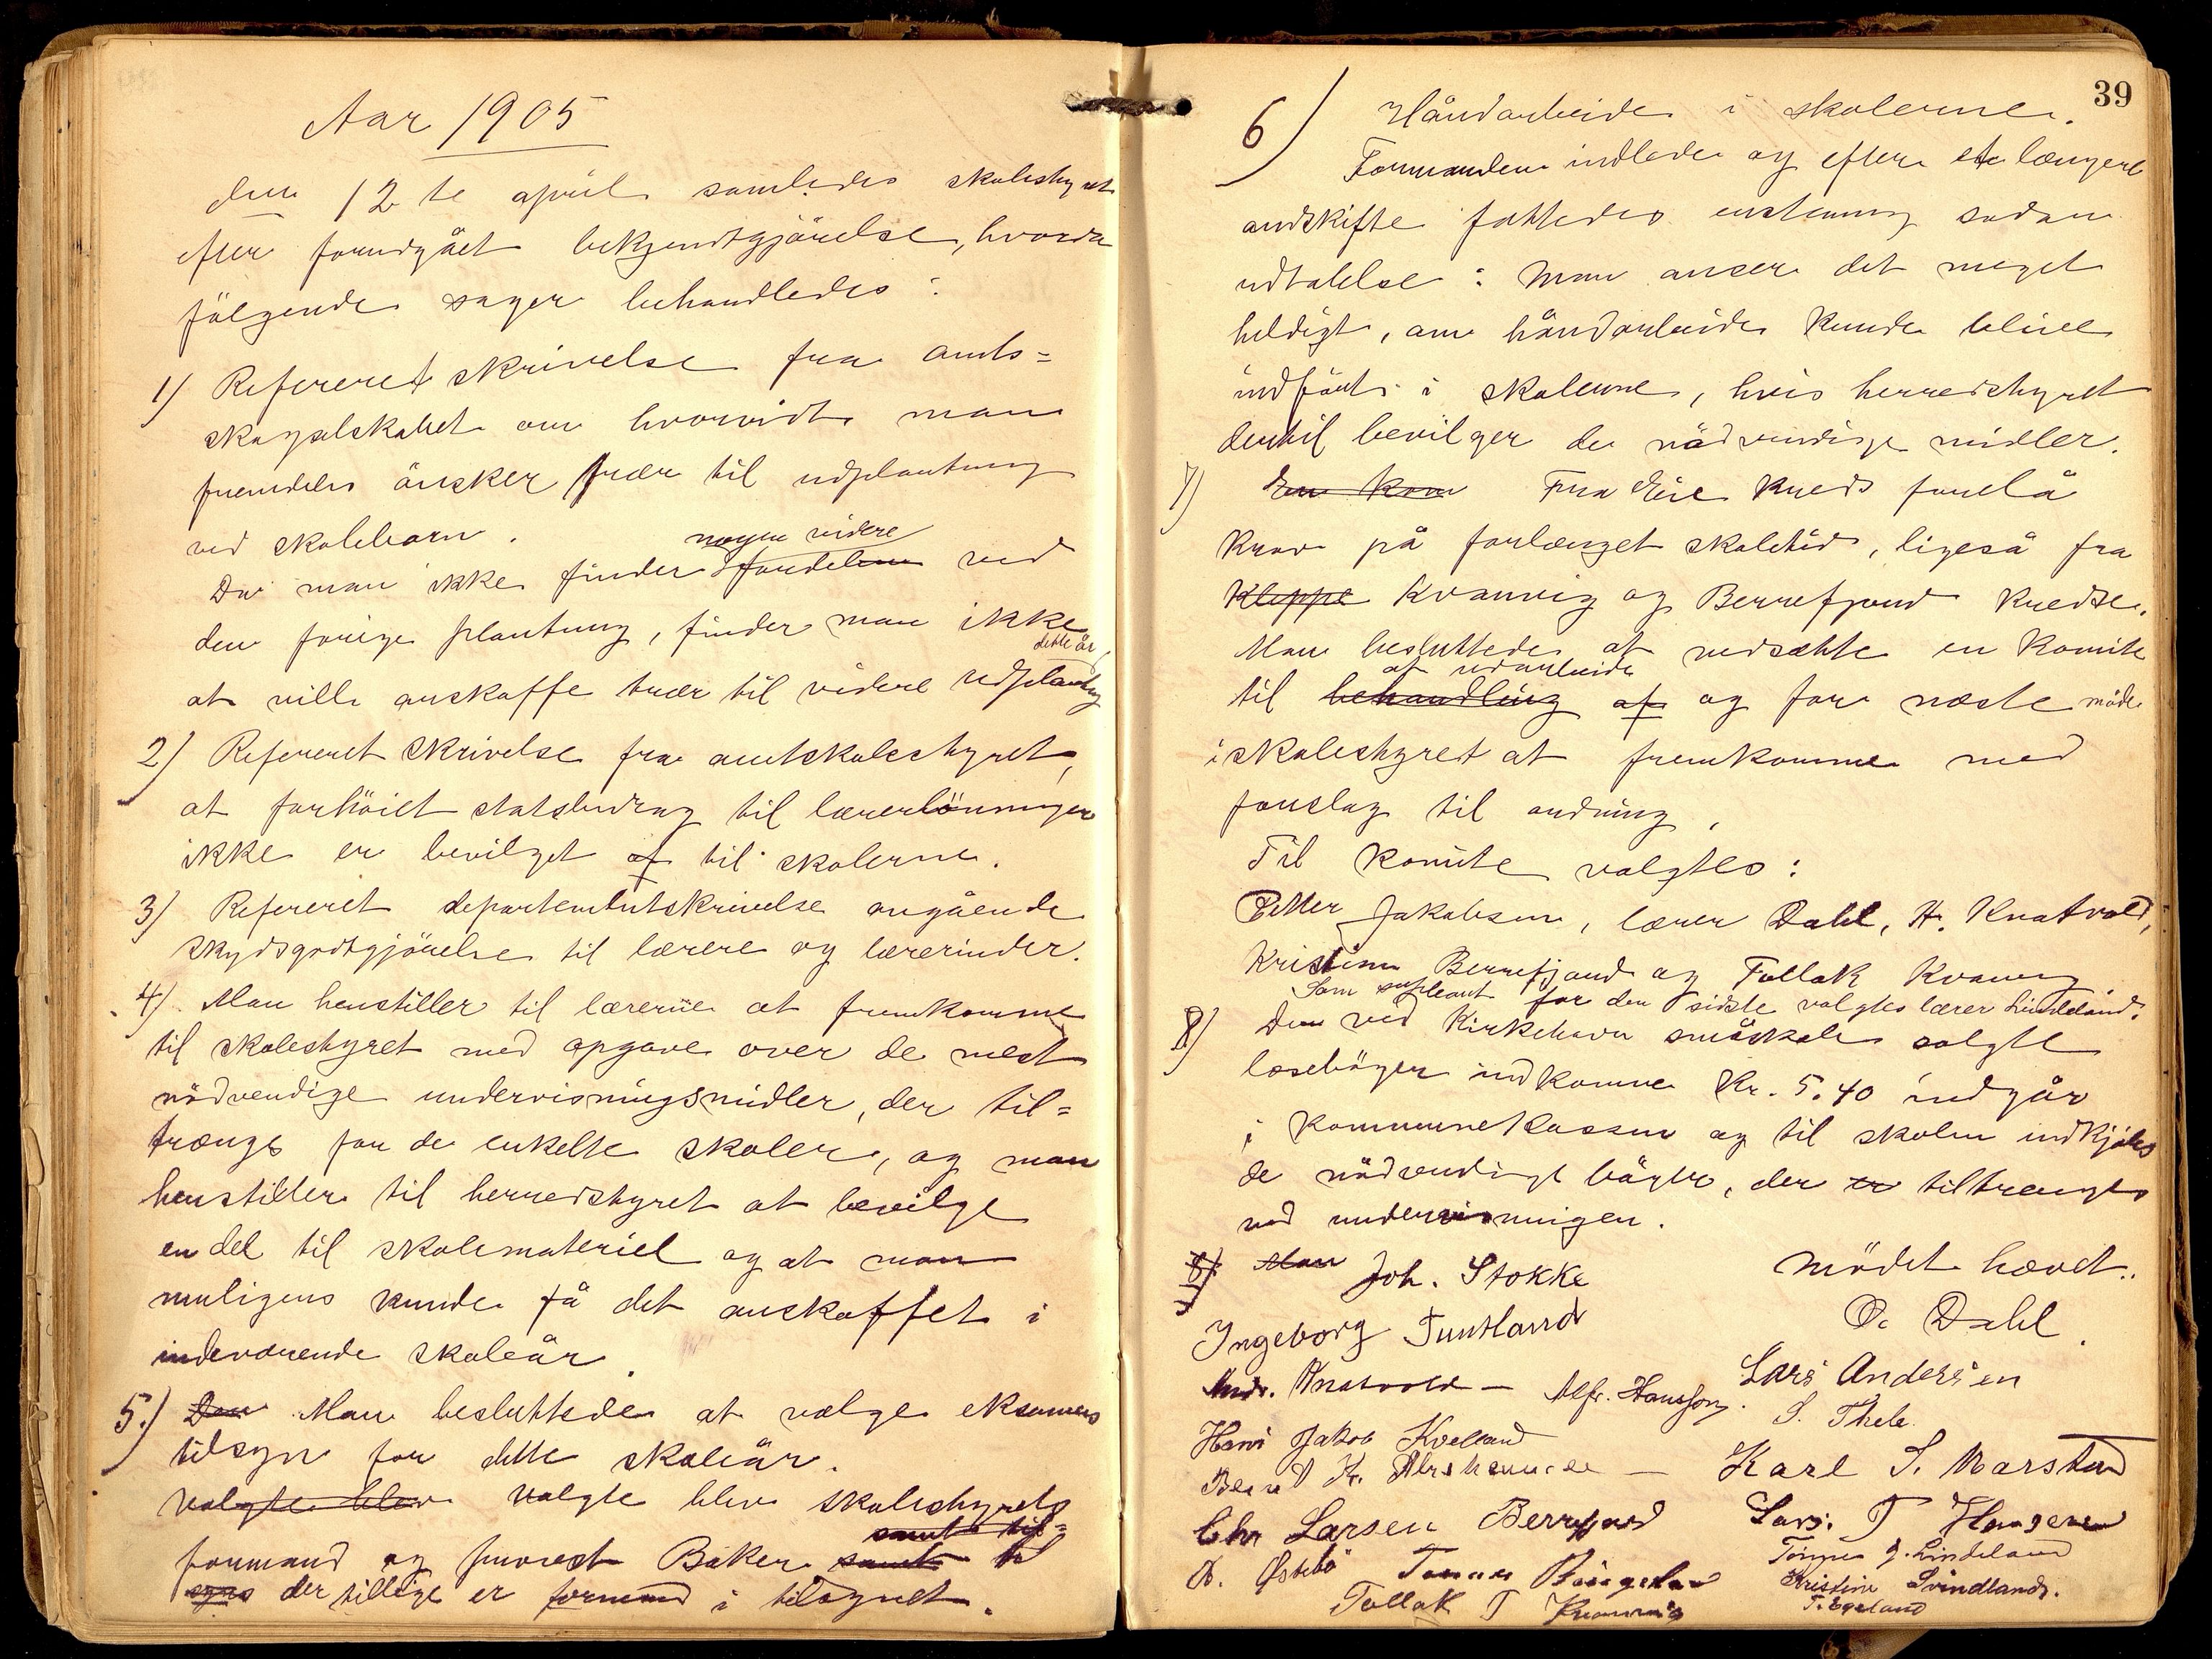 Aar 1905
den 12te april samledes skolestyret
efter forudgået bekjendtgjörelse, hvorda
fölgende sager behandledes:
1) Refereret skrivelse fra amts=
skogselskabet om hvorvidt man
fremdeles önsker trær til udplantning
ved skolebarn.
nogen videre
Da man ikke finder fordelene ved
den forige plantning, finder man ikke
dette år
at ville anskaffe trær til videre udplantng
2) Refereret skrivelse fra amtskolestyret,
at forhöiet statsbidrag til lærerlönninger
ikke er bevilget af til skolerne.
3) Refereret departementskrivelse angående
skydsgodtgjörelse til lærere og lærerinder.
4) Man henstiller til lærerne at fremkomme
til skolestyret med opgave over de mest
nödvendige undervisningsmidler, der til=
trængs for de enkelte skoler, og man
henstiller til herredstyret at bevilge
en del til skolemateriel og at man
muligens kunde få det anskaffet i
indeværende skoleår.
5.) Den Man besluttede at vælge eksamens
tilsyn for dette skoleår.
Valgte blev Valgte blev skolestyrets
samt til=
formand og provst Bäker samt til
syns der tillige er formand i tilsynet.
39
6) Håndarbeide i skolerne.
Formanden indlede og efter et længere
ordskifte fattedes enstemmig sådan
udtalelse: Man anser det meget
heldigt, om håndarbeide kunde blive
indfört i skolerne, hvis herredstyret
dertil bevilger de nödvendige midler.
7) En kom Fra Eie kreds forelå
krav på forlænget skoletid, ligeså fra
Kleppe Kvanvig og Berrefjord kredse.
Man besluttede at nedsætte en komite
at udarbeide
til behandling af og for næste möde
i skolestyret at fremkomme med
forslag til ordning,
Til komite valgtes:
Petter Jakobsen, lærer Dahl, H. Knatvold,
Kristine Berrefjord og Tollak Kvanvig
Som supleant for den sidste valgtes lærer Lindeland.
8) Den ved Kirkehavn småskole solgte
læseböger indkomne Kr. 5.40 indgår
i kommunekassen og til skolen indkjöbes
de nödvendige böger, der er tiltrænges
ved undervisningen.
8) Man Joh. Stokke mödet hævet.
Ingeborg Tuntland O. Dahl
Andr. Knatvold – Alfr. Hansson. Lars Andersen
Hans Jakob Kvelland S. Thele
Bernt K. Abrahamsen – Karl S. Marstad
Chr Larsen Berrefjord Lars T Haugene
A. Östebö Tönnes J. Lindeland
Kristine Svindland.
Tollak T Kvanvig T. Egeland